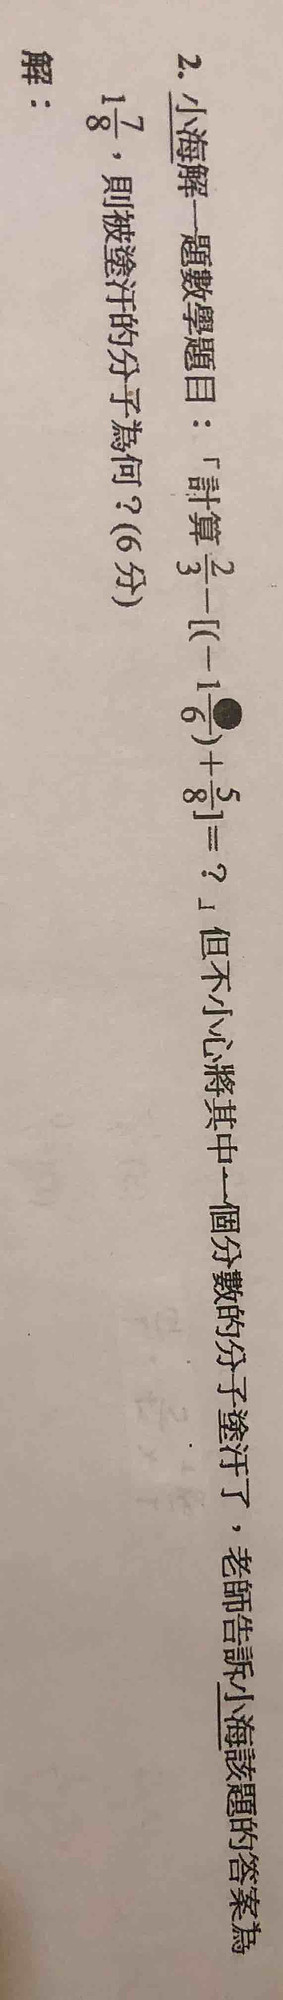 2. 小海解一題數學題目：「計算 2/3－[(－1 ●/6)＋5/8]＝？」但不小心將其中一個分數的分子塗汙了，老師告訴小海該題的答案為
1 7/8，則被塗汙的分子為何？(6 分)
解：